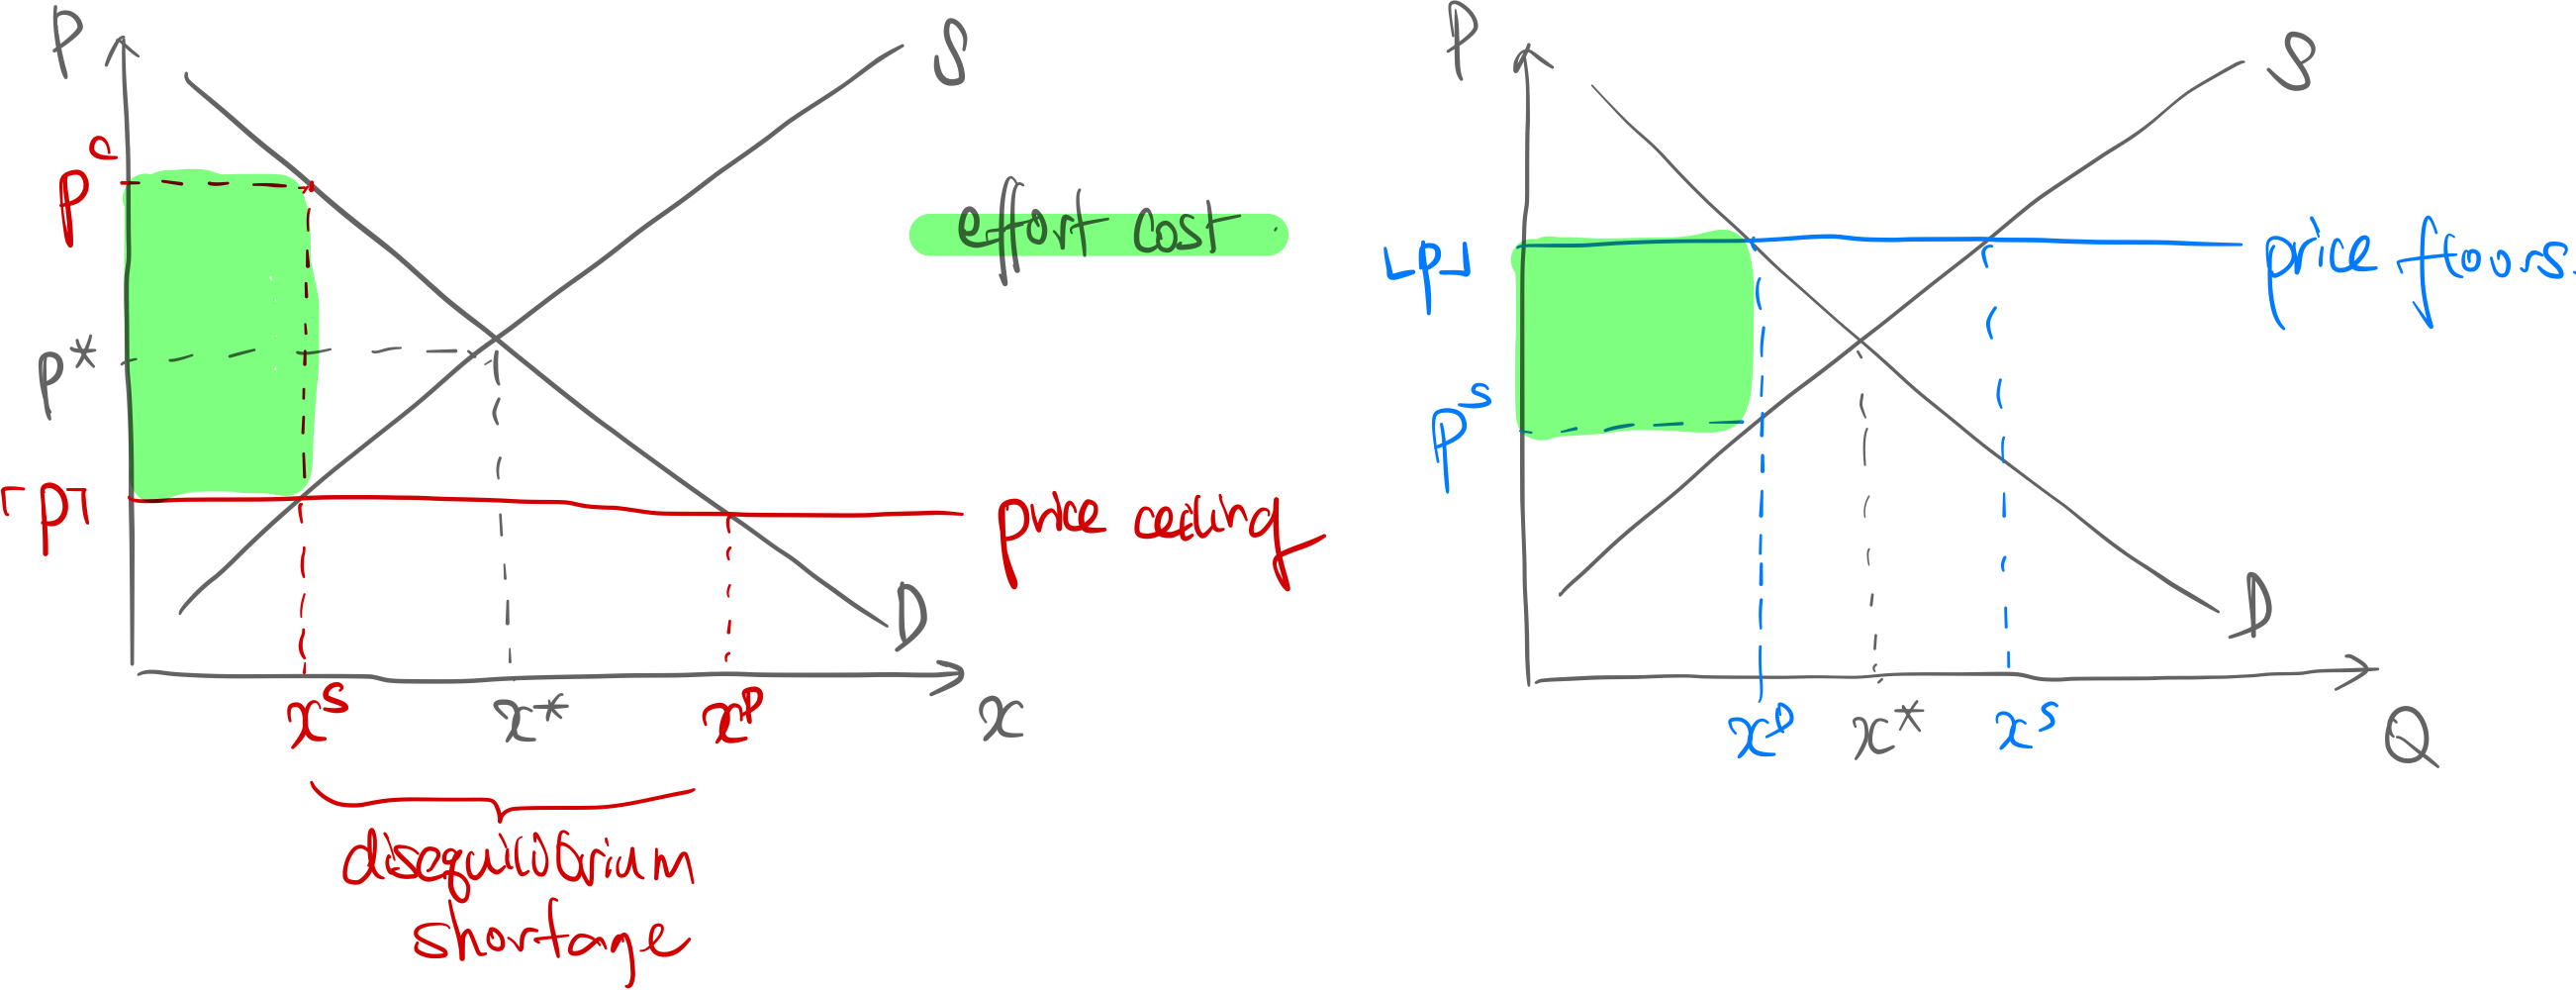 P
S
pᶜ
effort cost
p*
⌈p⌉
price ceiling
D
xˢ
x*
xᴰ
x
disequilibrium
shortage
P
S
⌊p⌋
price floors
pˢ
D
xᴰ
x*
xˢ
Q